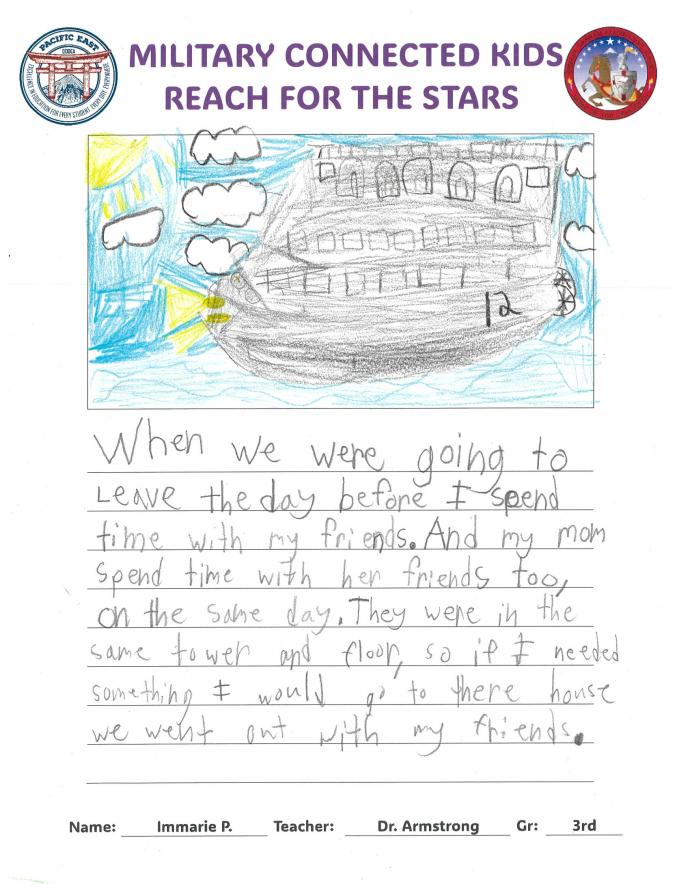 PACIFIC EAST
DODEA
EXCELLENCE IN EDUCATION FOR EVERY STUDENT, EVERY DAY, EVERYWHERE
MILITARY CONNECTED KIDS
REACH FOR THE STARS
12
When we were going to
Leave the day before I spend
time with my friends. And my mom
spend time with her friends too,
on the same day. They were in the
same tower and floor, so if I needed
something I would go to there house
we went out with my friends.
Name: Immarie P. Teacher: Dr. Armstrong Gr: 3rd